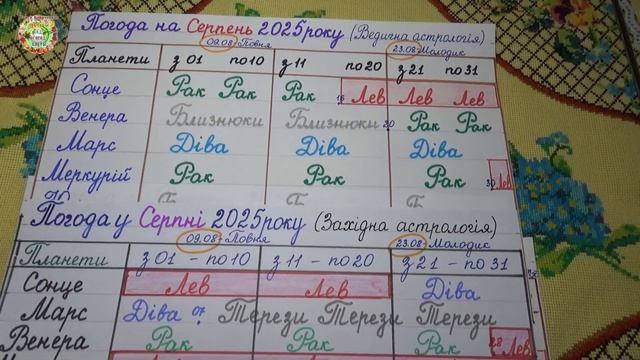 Погода на Серпень 2025 року (Ведична астрологія)
09.08 Повня 23.08 Молодик
Планети з 01 по 10 з 11 по 20 з 21 по 31
Сонце Рак Рак Рак 16 Лев Лев Лев
Венера Близнюки Близнюки 20 Рак Рак
Марс Діва Діва Діва
Меркурій Рак Рак Рак 30 Лев
Погода у Серпні 2025 року (Західна астрологія)
09.08 Повня 23.08 Молодик
Планети з 01 - по 10 з 11 - по 20 з 21 - по 31
Сонце Лев Лев Діва
Марс Діва 07 Терези Терези Терези
Венера Рак Рак Рак 28 Лев